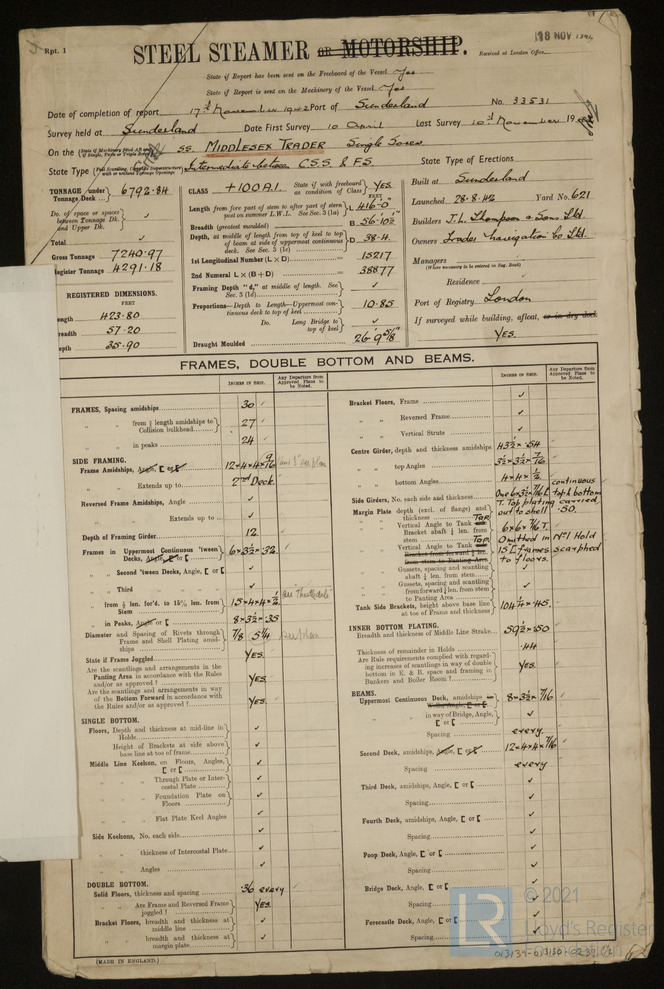 Rpt. 1
18 NOV 1942
STEEL STEAMER or MOTORSHIP.
Received at London Office
State if Report has been sent on the Freeboard of the Vessel Yes
State if Report is sent on the Machinery of the Vessel Yes
Date of completion of report 17th November 1942 Port of Sunderland No. 33531
Survey held at Sunderland Date First Survey 10 April Last Survey 10th November 19
On the SS. MIDDLESEX TRADER Single Screw
State Type Intermediate between C.S.S. & F.S. State Type of Erections
TONNAGE under Tonnage Deck 6792.84
Do. of space or spaces between Tonnage Dk. and Upper Dk. ✓
Total ✓
Gross Tonnage 7240.97
Register Tonnage 4291.18
REGISTERED DIMENSIONS.
FEET
ength 423.80
readth 57.20
epth 35.90
CLASS +100A1. State if with freeboard as condition of Class YES
FEET
Length from fore part of stem to after part of stern post on summer L.W.L. See Sec. 3 (1a) L 416-0"
Breadth (greatest moulded) B 56-10½
Depth, at middle of length from top of keel to top of beam at side of uppermost continuous deck. See Sec. 3 (1c) D 38.4
1st Longitudinal Number (L × D) = 15217
2nd Numeral L × (B+D) = 38877
Framing Depth "d," at middle of length. See Sec. 3 (1d) ✓
Proportions—Depth to Length—Uppermost continuous deck to top of keel 10.85
Do. Long Bridge to top of keel ✓
Draught Moulded 26' 9 5/8"
Built at Sunderland
Launched 28.8.42 Yard No. 621
Builders J.L. Thompson & Sons Ltd.
Owners Trader Navigation Co Ltd.
Managers
(Where necessary to be entered in Reg. Book)
Residence
Port of Registry London
If surveyed while building, afloat, or in dry dock
YES.
FRAMES, DOUBLE BOTTOM AND BEAMS.
INCHES IN SHIP.
Any Departure from Approved Plans to be Noted.
FRAMES, Spacing amidships 30 ✓
" " from ⅕ length amidships to Collision bulkhead 27 ✓
" " in peaks 24 ✓
SIDE FRAMING.
Frame Amidships, Angle, [ or [ 12×4×4×9/16
" " Extends up to 2nd Deck
Reversed Frame Amidships, Angle ✓
" " Extends up to ✓
Depth of Framing Girder 12
Frames in Uppermost Continuous 'tween Decks, Angle, [ or [ 6×3½×.32 ✓
" " Second 'tween Decks, Angle, [ or [ ✓
" " Third " " " ✓
" " from ⅕ len. for'd. to 15% len. from Stem 15×4×4×½
" " in Peaks, Angle or [ 8×3½×.35
Diameter and Spacing of Rivets through Frame and Shell Plating amidships 7/8 5¼
State if Frame Joggled YES.
Are the scantlings and arrangements in the Panting Area in accordance with the Rules and/or as approved? YES.
Are the scantlings and arrangements in way of the Bottom Forward in accordance with the Rules and/or as approved? YES
SINGLE BOTTOM.
Floors, Depth and thickness at mid-line in Holds ✓
" Height of Brackets at side above base line at toe of frame ✓
Middle Line Keelson, on Floors, Angles, [ or [ ✓
" " " Through Plate or Intercostal Plate ✓
" " " Foundation Plate on Floors ✓
" " " Flat Plate Keel Angles ✓
Side Keelsons, No. each side ✓
" " thickness of Intercostal Plate ✓
" " Angles ✓
DOUBLE BOTTOM.
Solid Floors, thickness and spacing .36 every
" " Are Frame and Reversed Frame joggled? YES.
Bracket Floors, breadth and thickness at middle line ✓
" " breadth and thickness at margin plate ✓
(MADE IN ENGLAND.)
INCHES IN SHIP.
Any Departure from Approved Plans to be Noted.
Bracket Floors, Frame ✓
" " Reversed Frame ✓
" " Vertical Struts ✓
Centre Girder, depth and thickness amidships 43½×.54
" " top Angles 3½×3½×7/16
" " bottom Angles 4×4×½
Side Girders, No. each side and thickness
Margin Plate depth (excl. of flange) and thickness
" " Vertical Angle to Tank
T. Top plating carried out to shell .50.
6×6×7/16 T.
Omitted in No1 Hold
15 [ frames scarphed to floors.
Gussets, spacing and scantling abaft ¼ len. from stem
Gussets, spacing and scantling from forward ¼ len. from stem to Panting Area
Tank Side Brackets, height above base line at toe of Frame and thickness 104¼×.45.
INNER BOTTOM PLATING.
Breadth and thickness of Middle Line Strake 59½×.50
Thickness of remainder in Holds .44
Are Rule requirements complied with regarding increase of scantlings in way of double bottom in E. & B. space and framing in Bunkers and Boiler Room? YES.
BEAMS.
Uppermost Continuous Deck, amidships 8×3½×7/16
" " in way of Bridge, Angle, [ or [ ✓
Spacing every
Second Deck, amidships, Angle, [ or [ 12×4×4×7/16
Spacing every
Third Deck, amidships, Angle, [ or [ ✓
Spacing ✓
Fourth Deck, amidships, Angle, [ or [ ✓
Spacing ✓
Poop Deck, Angle, [ or [ ✓
Spacing ✓
Bridge Deck, Angle, [ or [ ✓
Spacing ✓
Forecastle Deck, Angle, [ or [ ✓
Spacing ✓
© 2021
Lloyd's Register
Foundation